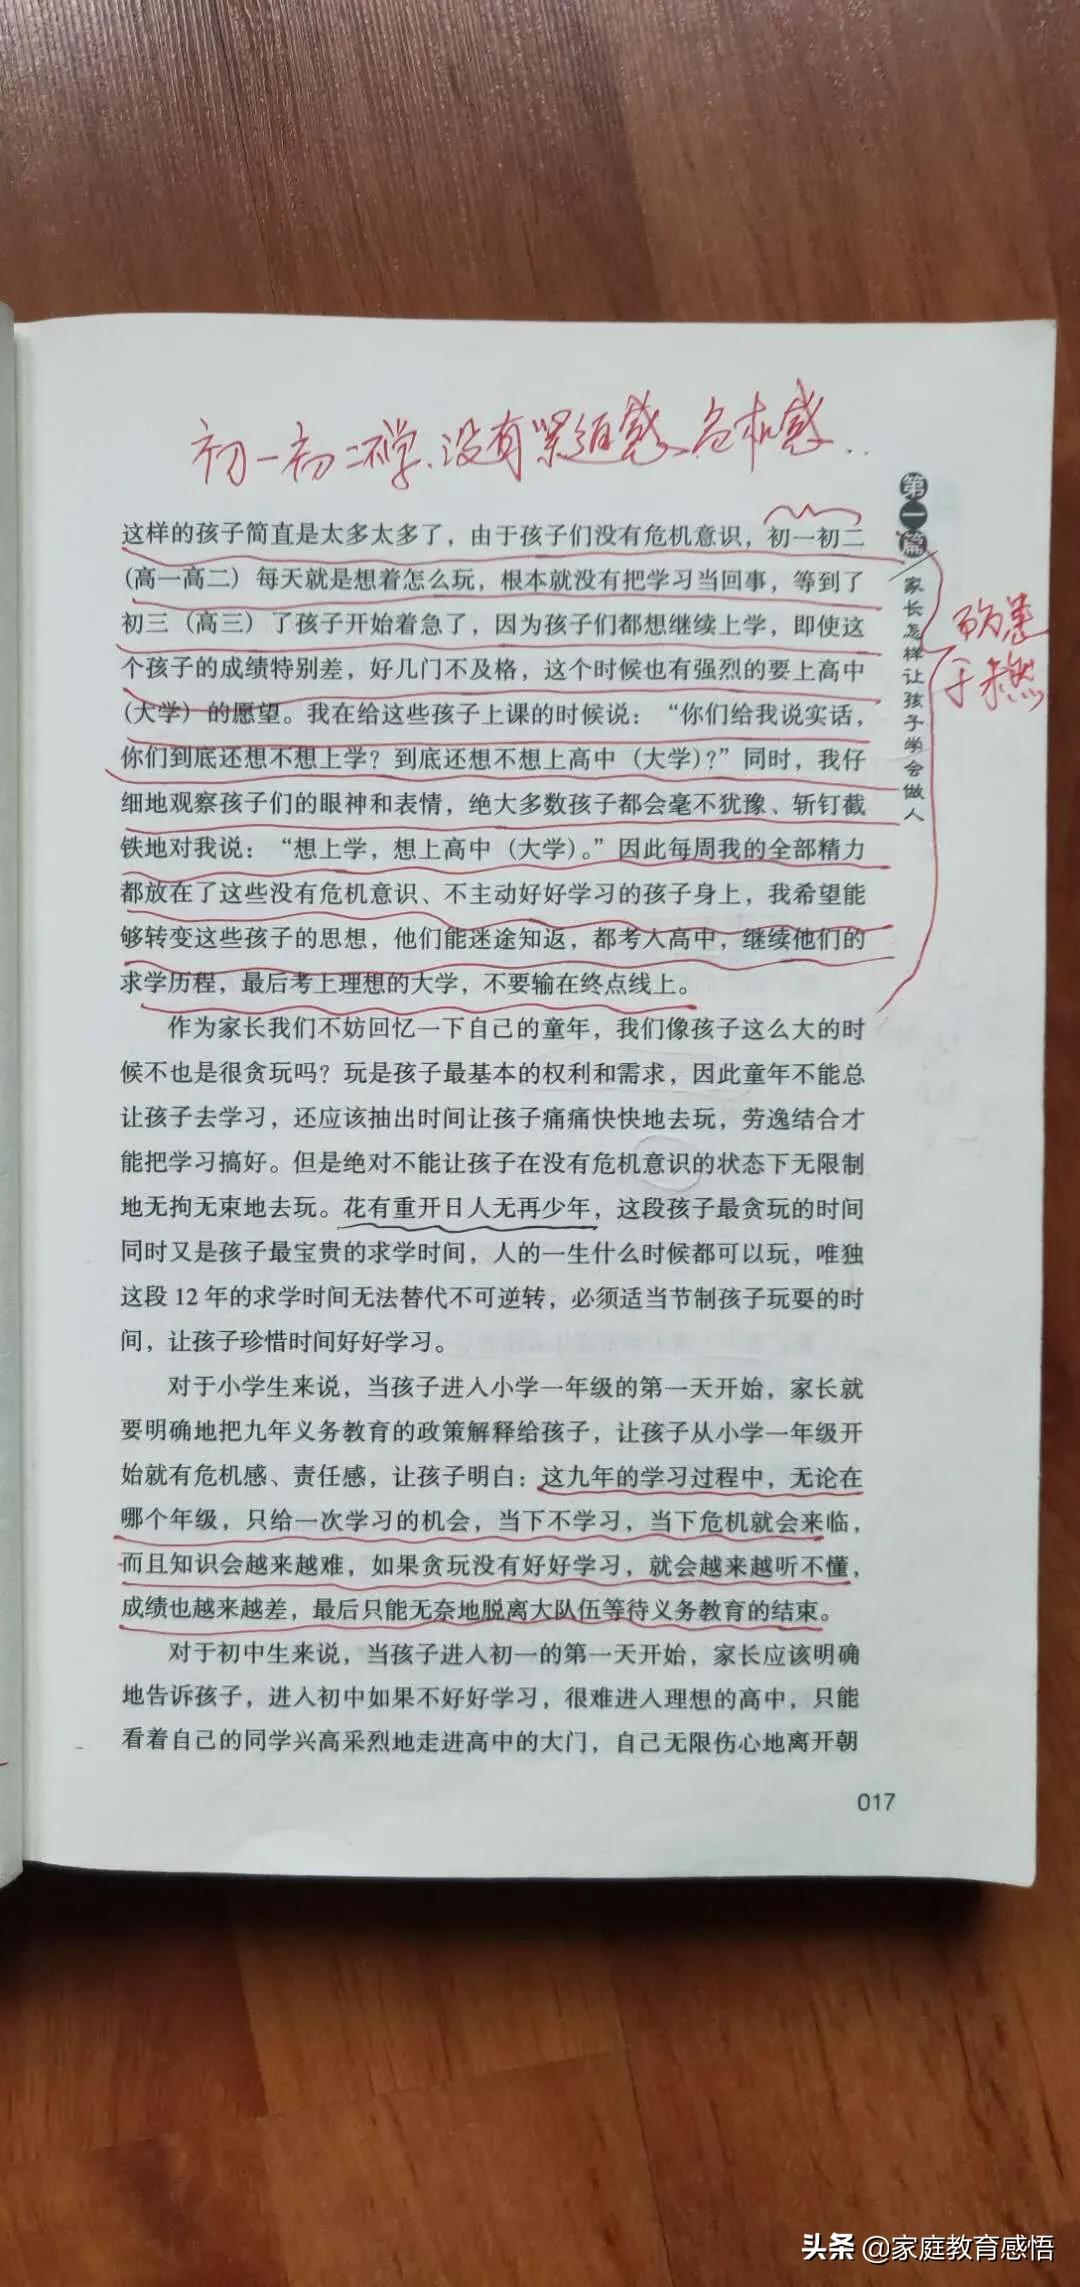 初一初二不学、没有紧迫感、危机感..
第一篇
家长怎样让孩子学会做人
防患
于未然
这样的孩子简直是太多太多了，由于孩子们没有危机意识，初一初二
（高一高二）每天就是想着怎么玩，根本就没有把学习当回事，等到了
初三（高三）了孩子开始着急了，因为孩子们都想继续上学，即使这
个孩子的成绩特别差，好几门不及格，这个时候也有强烈的要上高中
（大学）的愿望。我在给这些孩子上课的时候说：“你们给我说实话，
你们到底还想不想上学？到底还想不想上高中（大学）？”同时，我仔
细地观察孩子们的眼神和表情，绝大多数孩子都会毫不犹豫、斩钉截
铁地对我说：“想上学，想上高中（大学）。”因此每周我的全部精力
都放在了这些没有危机意识、不主动好好学习的孩子身上，我希望能
够转变这些孩子的思想，他们能迷途知返，都考入高中，继续他们的
求学历程，最后考上理想的大学，不要输在终点线上。
作为家长我们不妨回忆一下自己的童年，我们像孩子这么大的时
候不也是很贪玩吗？玩是孩子最基本的权利和需求，因此童年不能总
让孩子去学习，还应该抽出时间让孩子痛痛快快地去玩，劳逸结合才
能把学习搞好。但是绝对不能让孩子在没有危机意识的状态下无限制
地无拘无束地去玩。花有重开日人无再少年，这段孩子最贪玩的时间
同时又是孩子最宝贵的求学时间，人的一生什么时候都可以玩，唯独
这段 12 年的求学时间无法替代不可逆转，必须适当节制孩子玩耍的时
间，让孩子珍惜时间好好学习。
对于小学生来说，当孩子进入小学一年级的第一天开始，家长就
要明确地把九年义务教育的政策解释给孩子，让孩子从小学一年级开
始就有危机感、责任感，让孩子明白：这九年的学习过程中，无论在
哪个年级，只给一次学习的机会，当下不学习，当下危机就会来临，
而且知识会越来越难，如果贪玩没有好好学习，就会越来越听不懂，
成绩也越来越差，最后只能无奈地脱离大队伍等待义务教育的结束。
对于初中生来说，当孩子进入初一的第一天开始，家长应该明确
地告诉孩子，进入初中如果不好好学习，很难进入理想的高中，只能
看着自己的同学兴高采烈地走进高中的大门，自己无限伤心地离开朝
017
头条 @家庭教育感悟